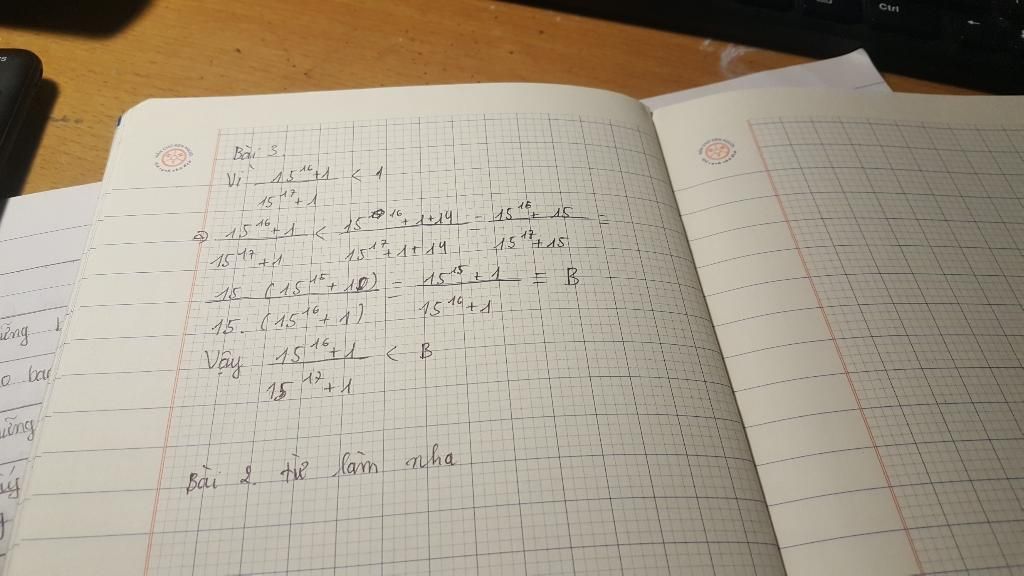 Ctrl
Bài 3.
Vì \frac{15^{16}+1}{15^{17}+1} < 1
=> \frac{15^{16}+1}{15^{17}+1} < \frac{15^{16}+1+14}{15^{17}+1+14} = \frac{15^{16}+15}{15^{17}+15} =
\frac{15.(15^{15}+1)}{15.(15^{16}+1)} = \frac{15^{15}+1}{15^{16}+1} = B
Vậy \frac{15^{16}+1}{15^{17}+1} < B
Bài 2. từ làm nha